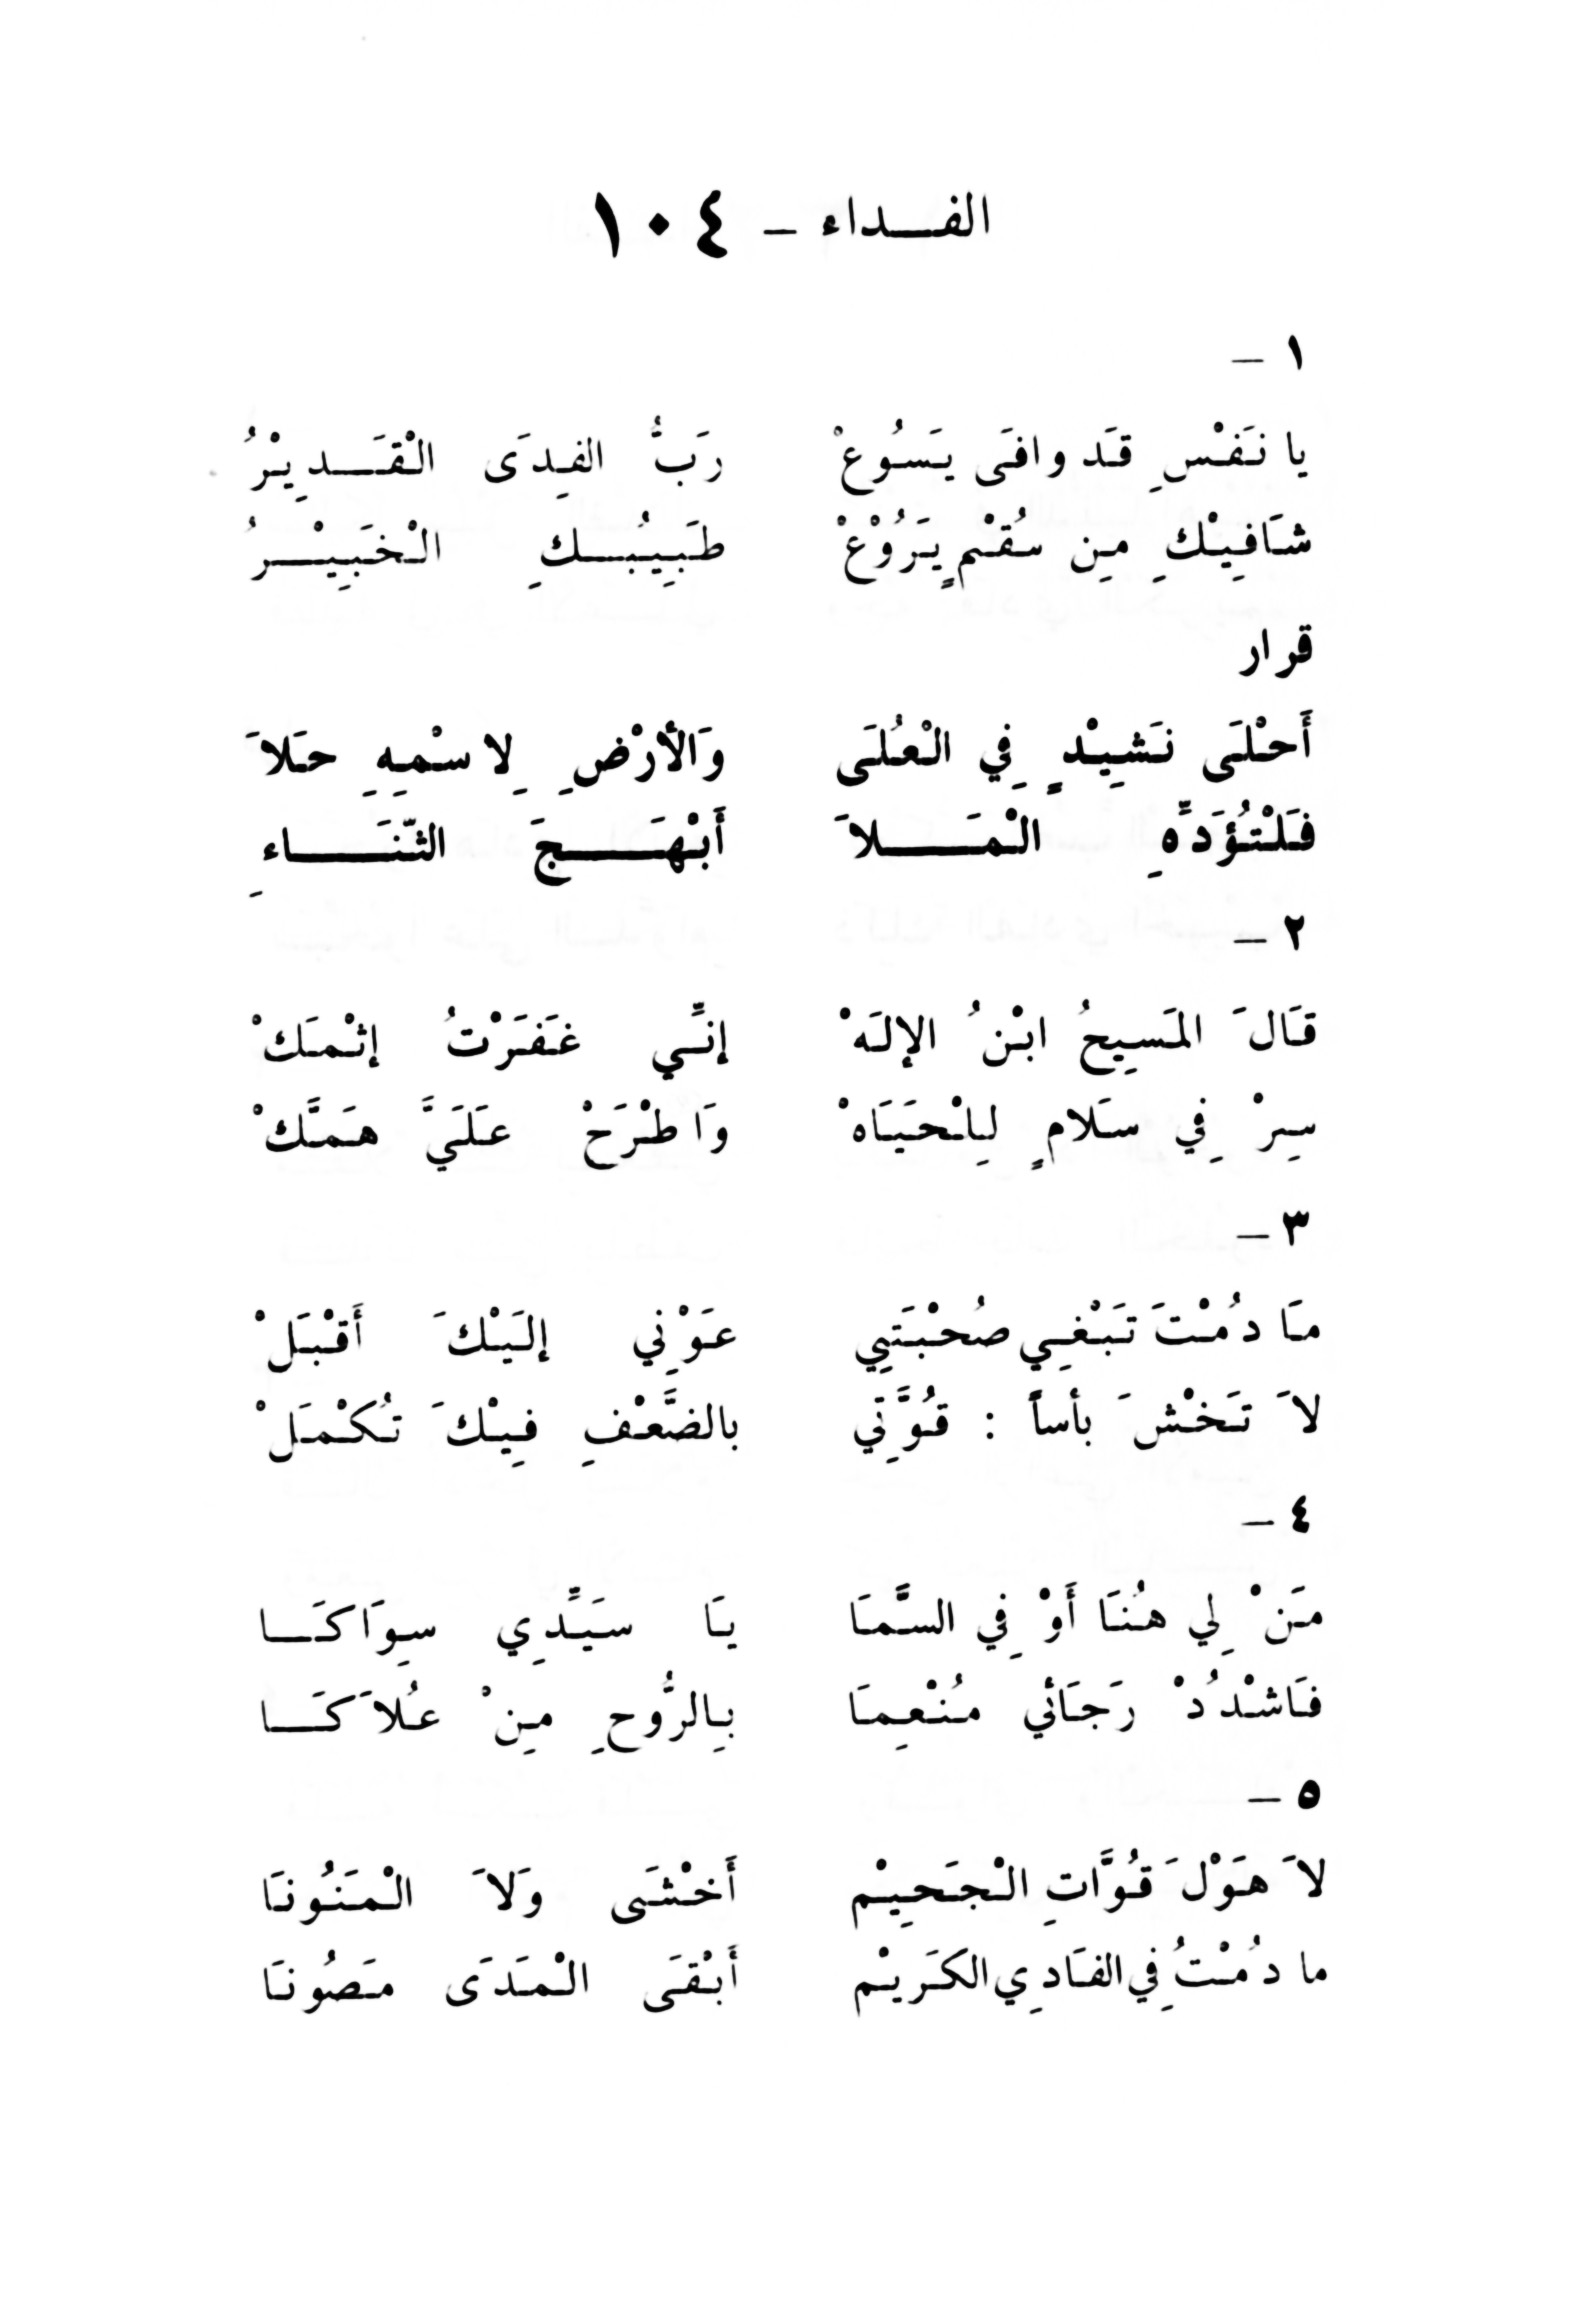 الفداء - ١٠٤
١ -
يا نَفْسِ قَد وافَى يَسُوعْ رَبُّ الفِدَى الْقَدِيْرُ
شَافِيْكِ مِن سُقْمٍ يَرُوْعْ طَبِيبُكِ الْخَبِيْرُ
قرار
أَحْلَى نَشِيْدٍ فِي الْعُلَى وَالأرْضِ لِاسْمِهِ حَلاَ
فَلْتُؤَدِّهِ الْمَلاَ أَبْهَجَ الثَّنَاءِ
٢ -
قَالَ المَسِيحُ ابْنُ الإلَهْ إنِّي غَفَرْتُ إثْمَكْ
سِرْ فِي سَلامٍ لِلْحَيَاهْ وَاطْرَحْ عَلَيَّ هَمَّكْ
٣ -
مَا دُمْتَ تَبْغِي صُحْبَتِي عَوْنِي إلَيْكَ أَقْبَلْ
لاَ تَخْشَ بأساً : قُوَّتِي بالضَّعْفِ فِيْكَ تُكْمَلْ
٤ -
مَنْ لِي هُنَا أَوْ فِي السَّمَا يَا سَيِّدِي سِوَاكَا
فَاشْدُدْ رَجَائي مُنْعِمَا بِالرُّوحِ مِنْ عُلاَكَا
٥ -
لاَ هَوْلَ قُوَّاتِ الْجَحِيْم أَخْشَى وَلاَ الْمَنُونَا
ما دُمْتُ فِي الفَادِي الكَرِيْم أَبْقَى الْمَدَى مَصُونَا